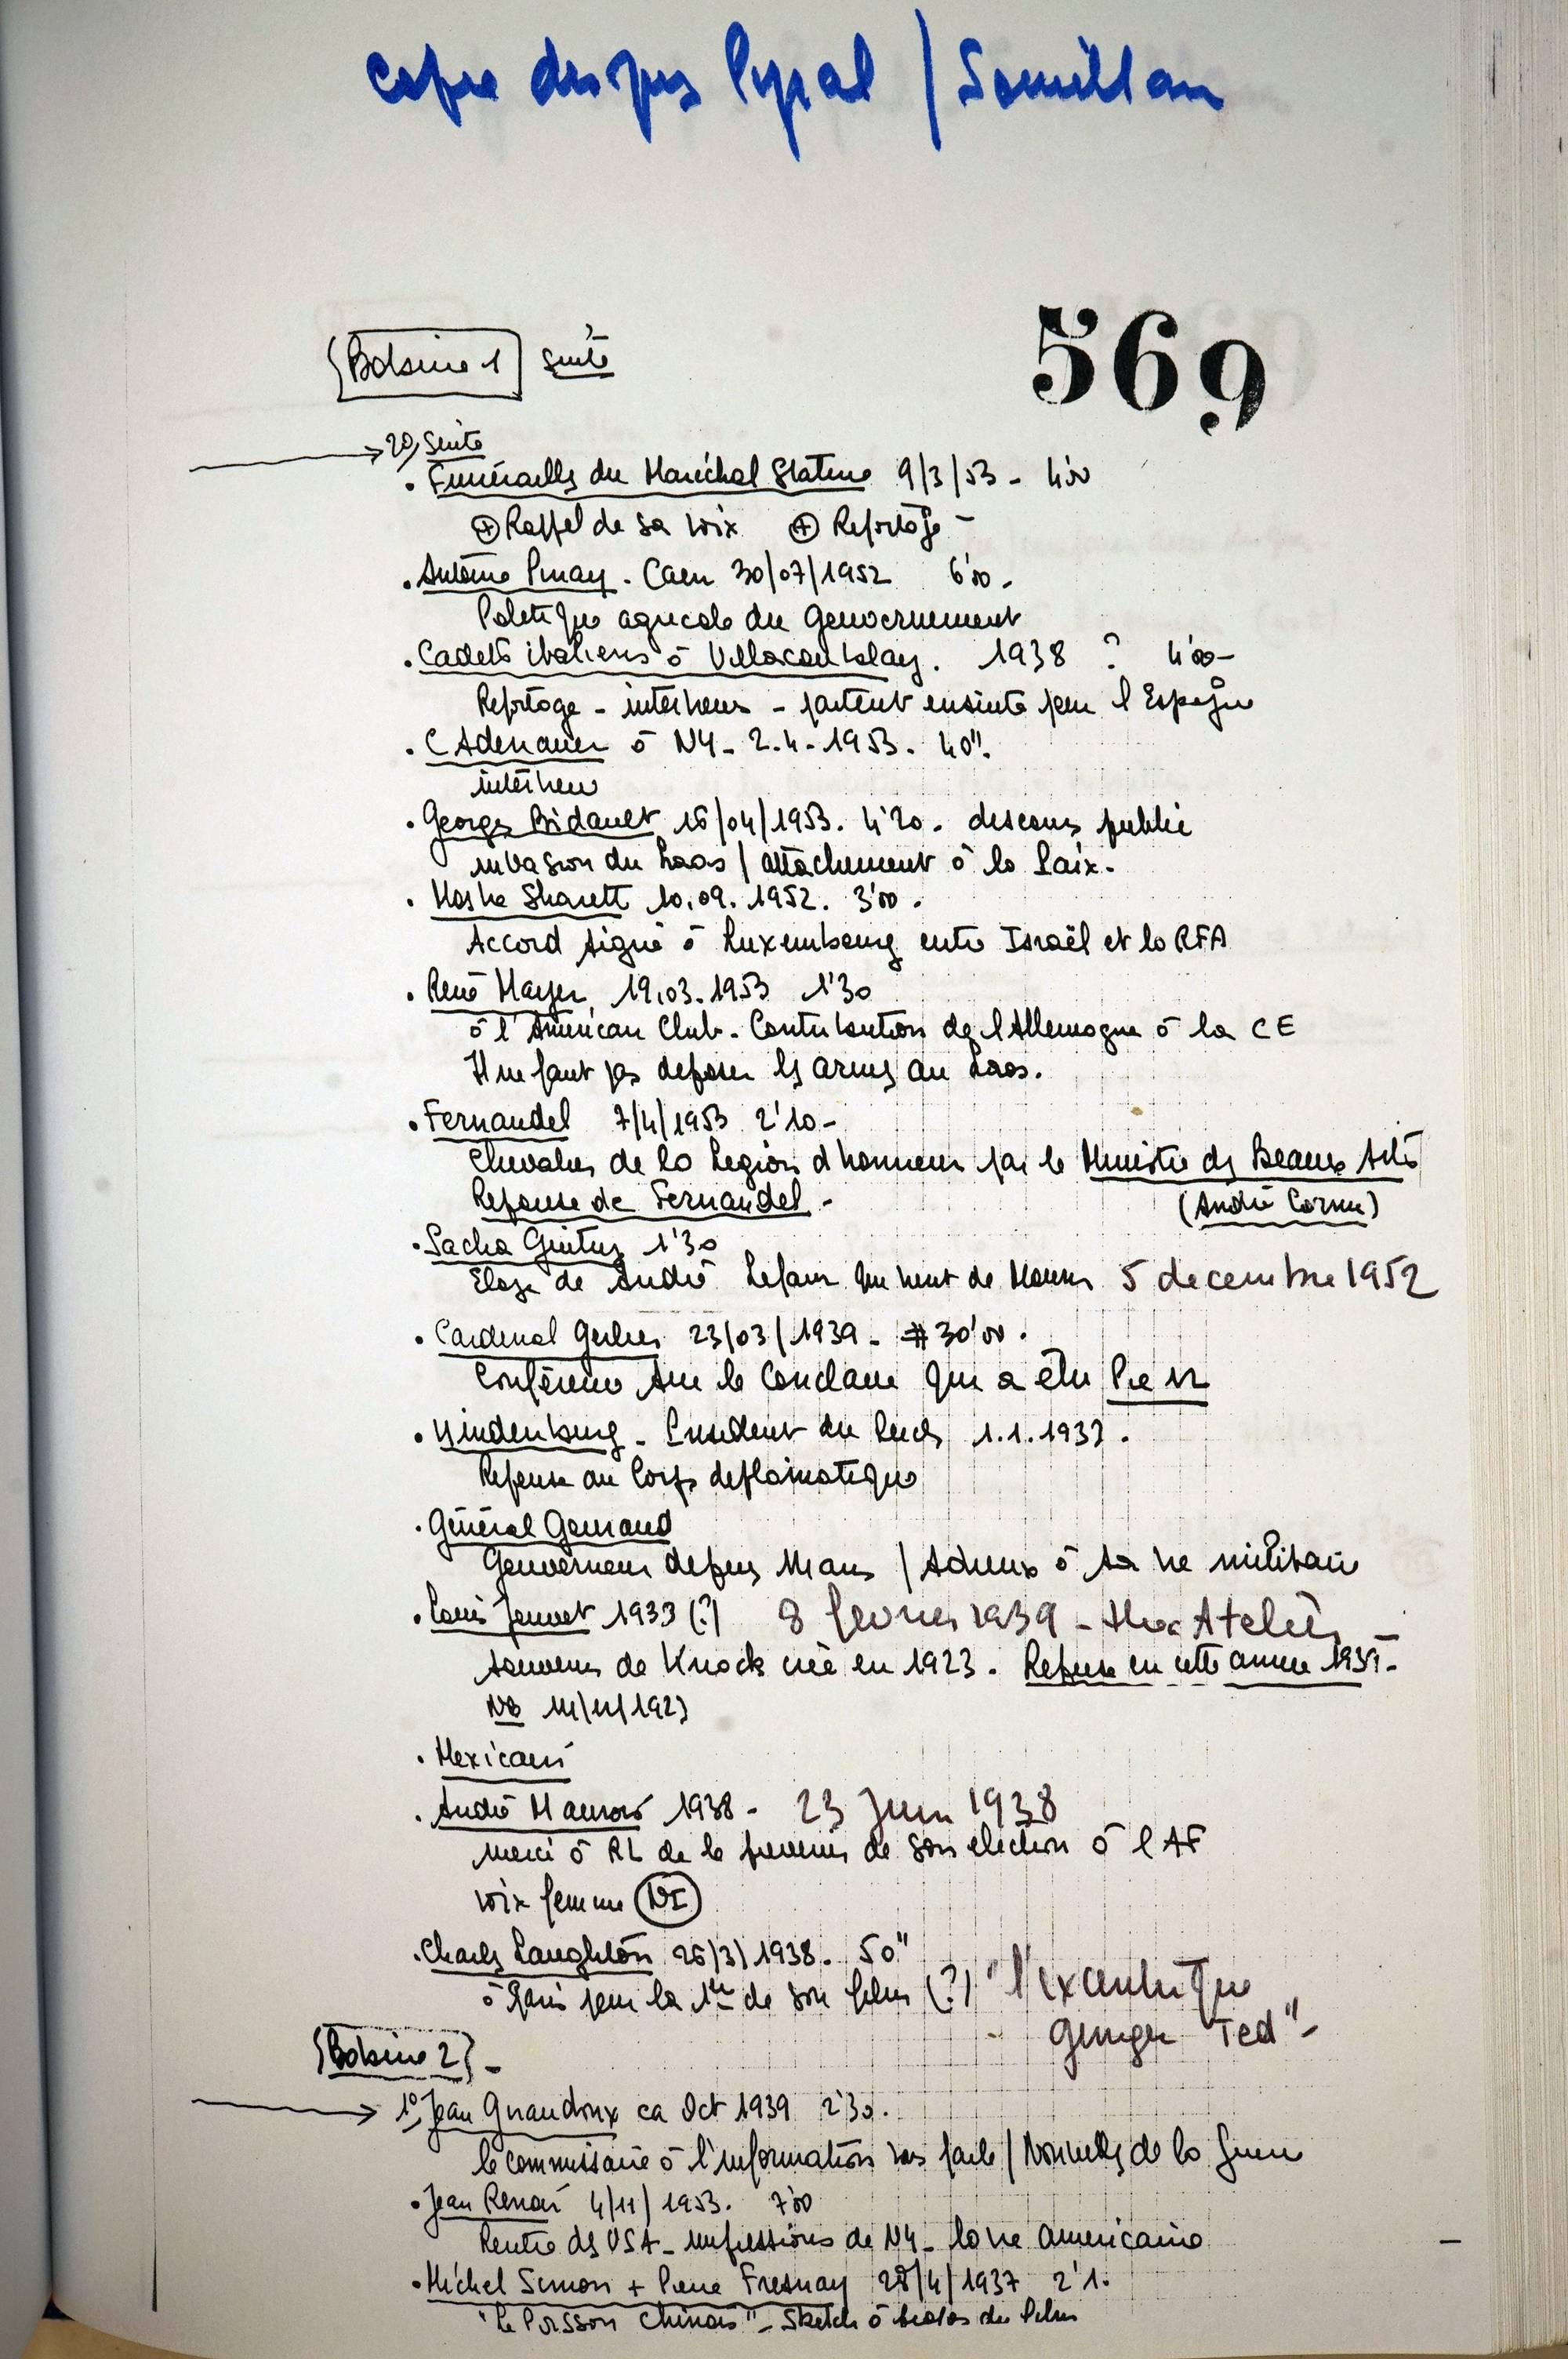 copie disques Pyral / Souvillan
569
Bobine 1 suite
2°, suite
. Funérailles du Maréchal Staline 9/3/53 - 4'00
⊕ Rappel de sa voix ⊕ Reportage -
. Antoine Pinay . Caen 30/07/1952 6'00 .
Politique agricole du Gouvernement
. Cadets italiens à Villacoublay . 1938 ? 4'00 -
Reportage - interviews - partent ensuite pour l'Espagne
. C Adenauer à NY - 2.4.1953 . 40".
interview
. Georges Bidault 16/04/1953 . 4'20 . discours public
invasion du Laos / attachement à la Paix .
. Moshe Sharett 10.09.1952 . 3'00 .
Accord signé à Luxembourg entre Israël et la RFA
. René Mayer 19.03.1953 1'30
à l'American Club . Contribution de l'Allemagne à la CE
Il ne faut pas deposer les armes au Laos .
. Fernandel 7/4/1953 2'10 -
Chevalier de la Legion d'honneur par le Ministre des Beaux Arts
Reponse de Fernandel - (André Cornu)
. Sacha Guitry 1'30
Eloge de André Lefaur qui vient de Mourir 5 decembre 1952
. Cardinal Gerlier 23/03/1939 - # 30'00 .
Conférence sur le Conclave qui a élu Pie 12
. Hindenburg - President du Reich 1.1.1933 .
Reponse au Corps diplomatique
. Général Gouraud
Gouverneur depuis Mans / Adieux à sa vie militaire
. Louis Jouvet 1933 (?) 8 fevrier 1939 - Thea Atelier -
souvenirs de Knock créé en 1923 . Reprise en cette année 1939 -
NB 14/12/1923
. Mexicain
. André Maurois 1938 - 23 Juin 1938
Merci à RL de le prevenir de son election à l'AF
voix femme NI
. Charles Laughton 26/3/1938 . 50"
à Paris pour la 1ère de son film (?) "l'excentrique
Ginger Ted" -
Bobine 2 -
1°, Jean Giraudoux ca Oct 1939 2'30 .
le commissaire à l'information vous parle / Nouvelles de la Guerre
. Jean Renoir 4/11/1953 . 7'00
Rentre des USA - impressions de NY - la vie americaine
. Michel Simon + Pierre Fresnay 28/4/1937 2'1 .
"Le Poisson Chinois" - Sketch à batons du film